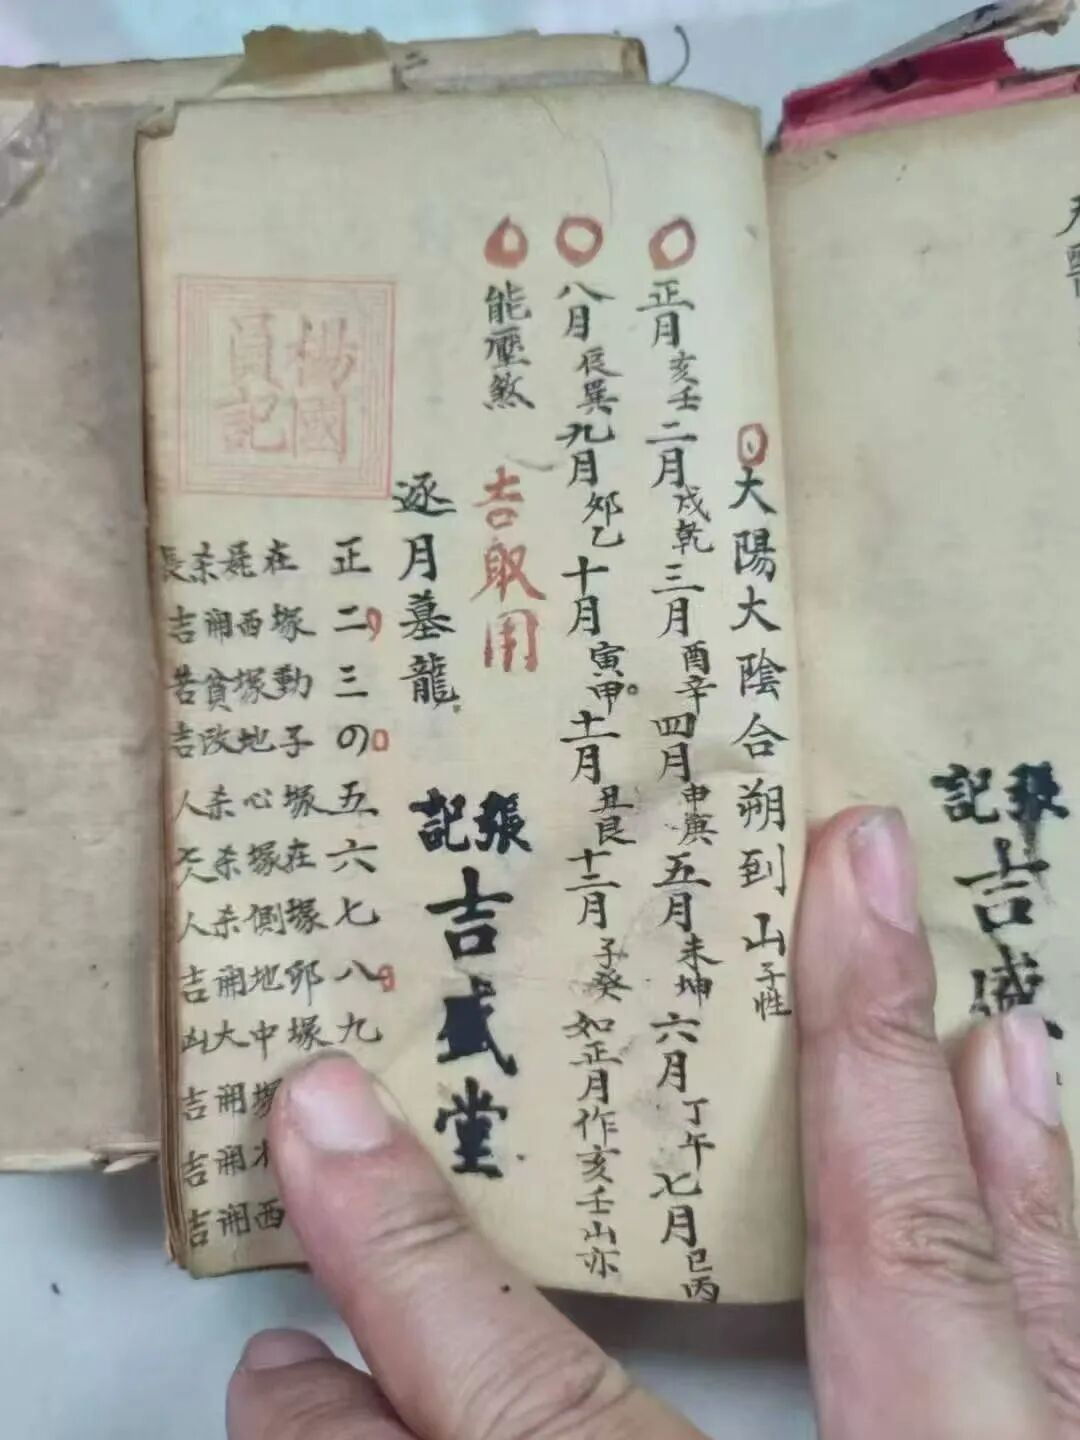 大陽大陰合朔到山子性
正月亥壬二月戌乾三月酉辛四月申庚五月未坤六月丁午七月巳丙
八月辰巽九月夘乙十月寅甲十一月丑艮十二月子癸如正月作亥壬山亦
能壓煞 吉取用
逐月墓龍
張記
吉盛堂
正 在 耗 杀 長
二 塚 西 開 吉
三 動 塚 貧 苦
の 子 地 改 吉
五 塚 心 杀 人
六 在 塚 杀
七 塚 側 杀 人
八 卯 地 開 吉
九 塚 中 大 凶
塚 開 吉
開 吉
西 開 吉
楊國
員記
張記
吉盛